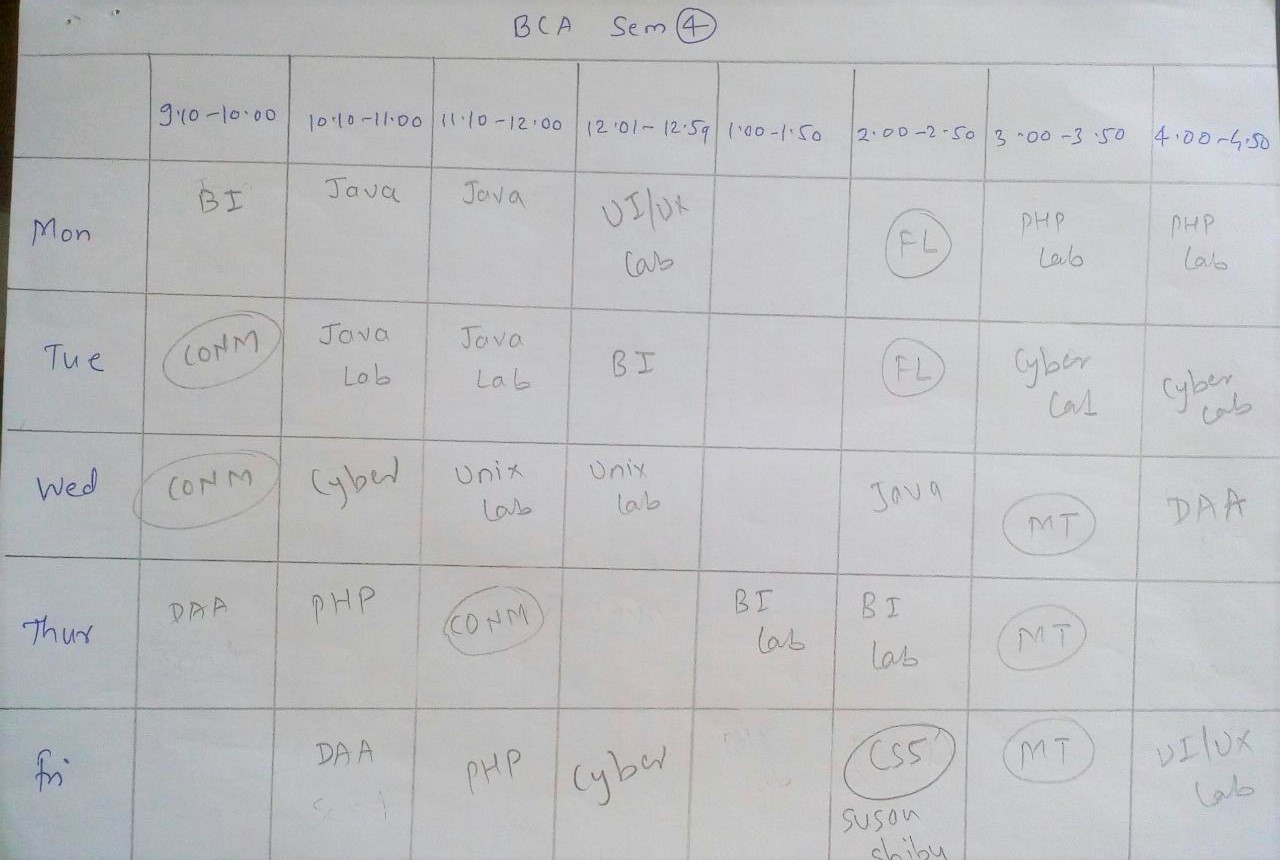 BCA Sem 4
9.10-10.00 10.10-11.00 11.10-12.00 12.01-12.59 1.00-1.50 2.00-2.50 3.00-3.50 4.00-4.50
Mon BI Java Java UI/UX Lab FL PHP Lab PHP Lab
Tue CONM Java Lab Java Lab BI FL Cyber Lab Cyber Lab
Wed CONM Cyber Unix Lab Unix lab Java MT DAA
Thur DAA PHP CONM BI Lab BI Lab MT
fri DAA PHP Cyber CS5 suson shibu MT UI/UX Lab